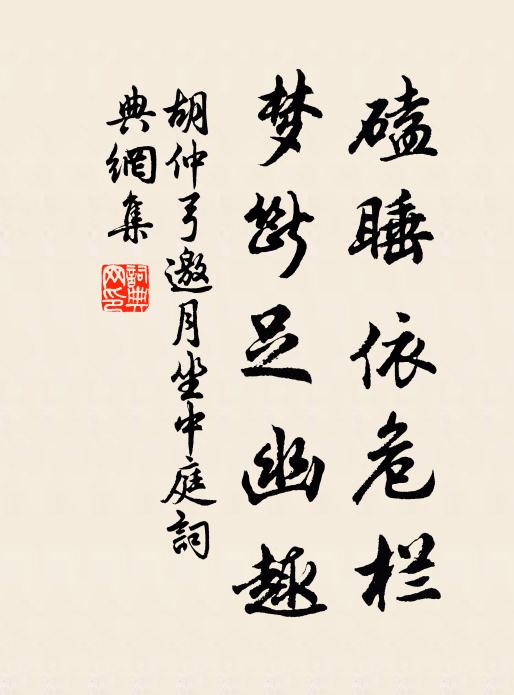 磕睡依危栏
梦断足幽趣
胡仲弓邀月坐中庭詞
典網集
詞典网印